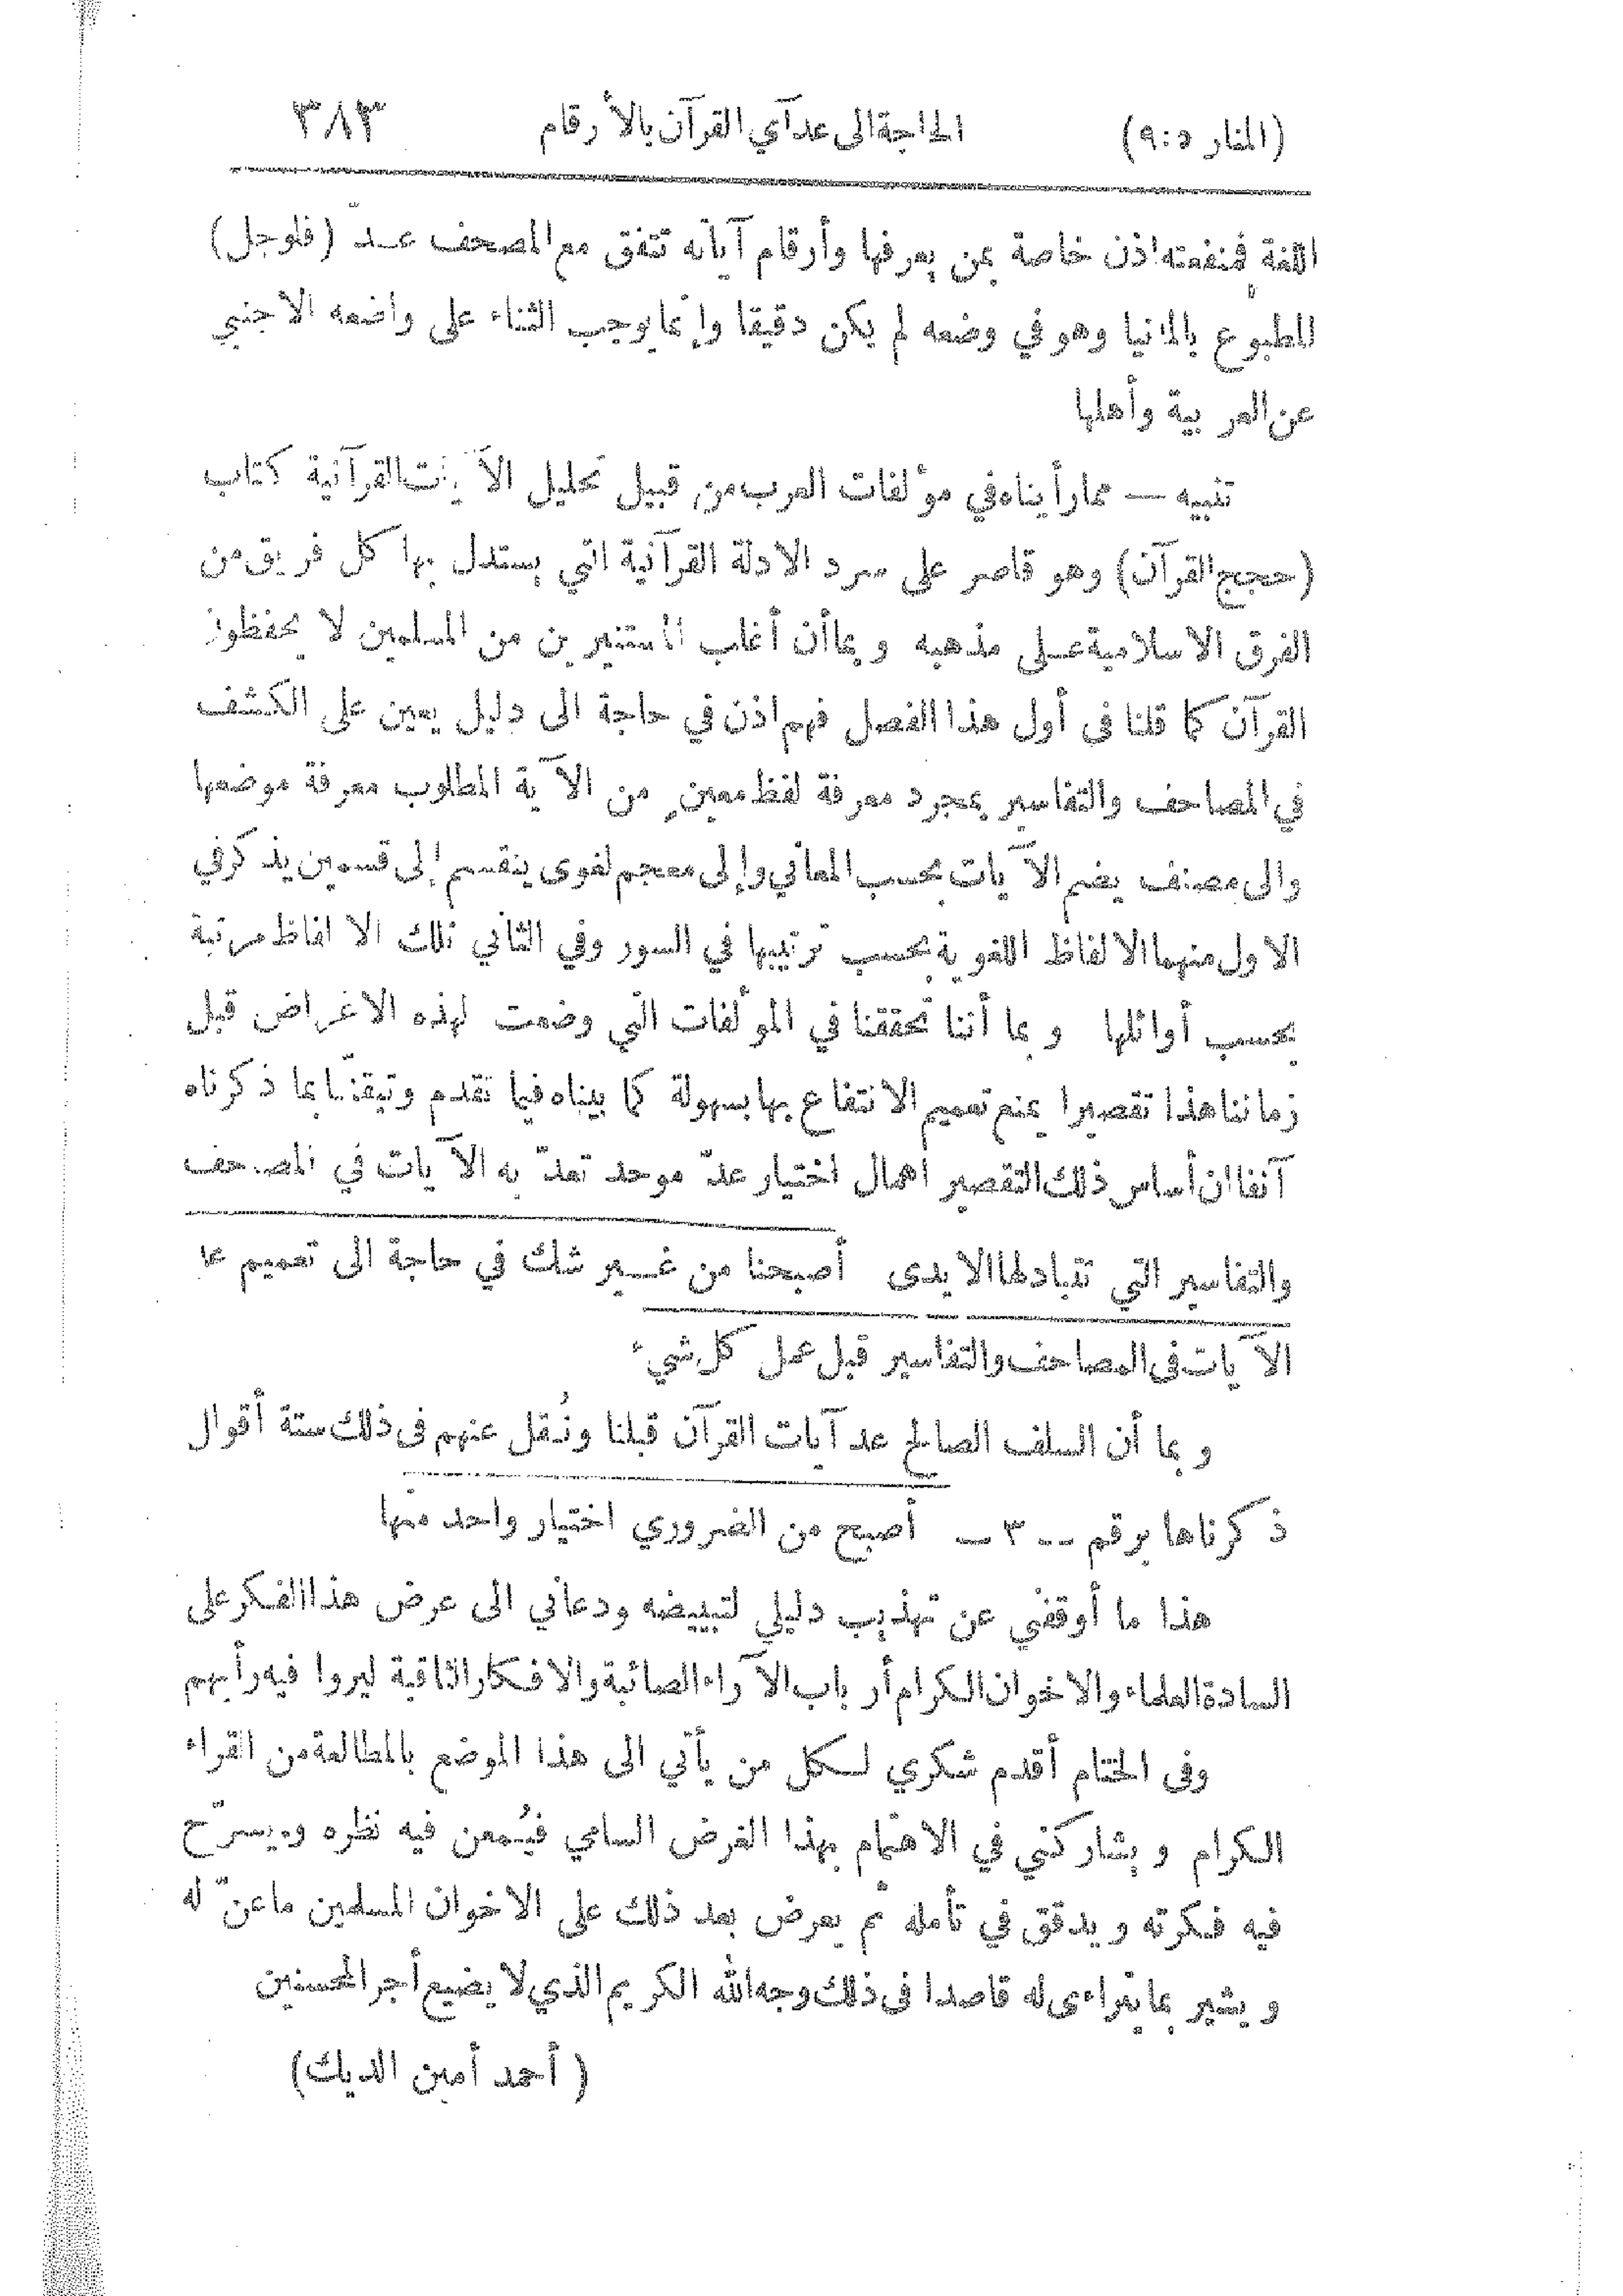 (المنار ٥:٩) الحاجة الى عد آي القرآن بالأرقام ٣٨٣
اللغة فمنفعته اذن خاصة بمن يعرفها وأرقام آياته تتفق مع المصحف عــدّ (فلوجل)
المطبوع بالمانيا وهو في وضعه لم يكن دقيقا وإنما يوجب الثناء على واضعه الاجنبي
عن العربية وأهلها
تنبيه — مما رأيناه في مؤلفات العرب من قبيل تحليل الآيات القرآنية كتاب
(حجج القرآن) وهو قاصر على سرد الادلة القرآنية التي يستدل بها كل فريق من
الفرق الاسلامية عــلى مذهبه وبما أن أغلب المستنيرين من المسلمين لا يحفظون
القرآن كما قلنا فى أول هذا الفصل فهم اذن في حاجة الى دليل يعين على الكشف
في المصاحف والتفاسير بمجرد معرفة لفظ معينٍ من الآية المطلوب معرفة موضعها
والى مصنف يضم الآيات بحسب المعاني وإلى معجم لغوى ينقسم إلى قسمين يذكر في
الاول منهما الالفاظ اللغوية بحسب ترتيبها في السور وفي الثاني تلك الالفاظ مرتبة
بحسب أوائلها وبما أننا تحققنا في المؤلفات التي وضعت لهذه الاغراض قبل
زماننا هذا تقصيرا يمنع تعميم الانتفاع بها بسهولة كما بيناه فيما تقدم وتيقنّا بما ذكرناه
آنفا ان أساس ذلك التقصير اهمال اختيار عدّ موحد تعدّ به الآيات في المصاحف
والتفاسير التي تتبادلها الايدى أصبحنا من غــير شك في حاجة الى تعميم عد
الآيات فى المصاحف والتفاسير قبل عمل كل شيء
وبما أن السلف الصالح عد آيات القرآن قبلنا ونُقل عنهم فى ذلك ستة أقوال
ذكرناها برقم — ٣ — أصبح من الضروري اختيار واحد منها
هذا ما أوقفني عن تهذيب دليلي لتبييضه ودعاني الى عرض هذا الفكر على
السادة العلماء والاخوان الكرام أرباب الآراء الصائبة والافكار الثاقبة ليروا فيه رأيهم
وفى الختام أقدم شكري لــكل من يأتي الى هذا الموضع بالمطالعة من القراء
الكرام ويشاركني في الاهتمام بهذا الغرض السامي فيُمعن فيه نظره ويسرّح
فيه فكرته ويدقق في تأمله ثم يعرض بعد ذلك على الاخوان المسلمين ما عنّ له
ويشير بما يتراءى له قاصدا فى ذلك وجه الله الكريم الذي لا يضيع أجر المحسنين
(أحمد أمين الديك)